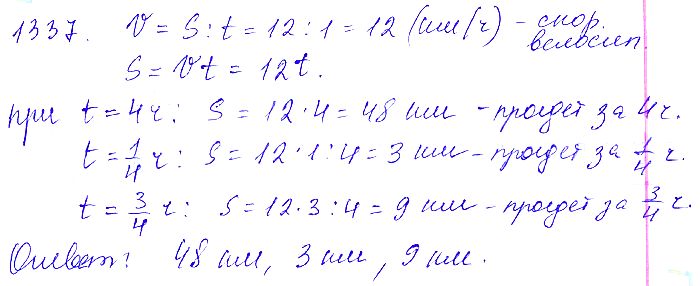 1337. V = S : t = 12 : 1 = 12 (км/ч) - скор. велосип.
S = Vt = 12t.
при t = 4ч: S = 12·4 = 48 км - пройдет за 4ч.
t = 1/4 ч: S = 12·1:4 = 3 км - пройдет за 1/4 ч.
t = 3/4 ч: S = 12·3:4 = 9 км - пройдет за 3/4 ч.
Ответ: 48 км, 3 км, 9 км.